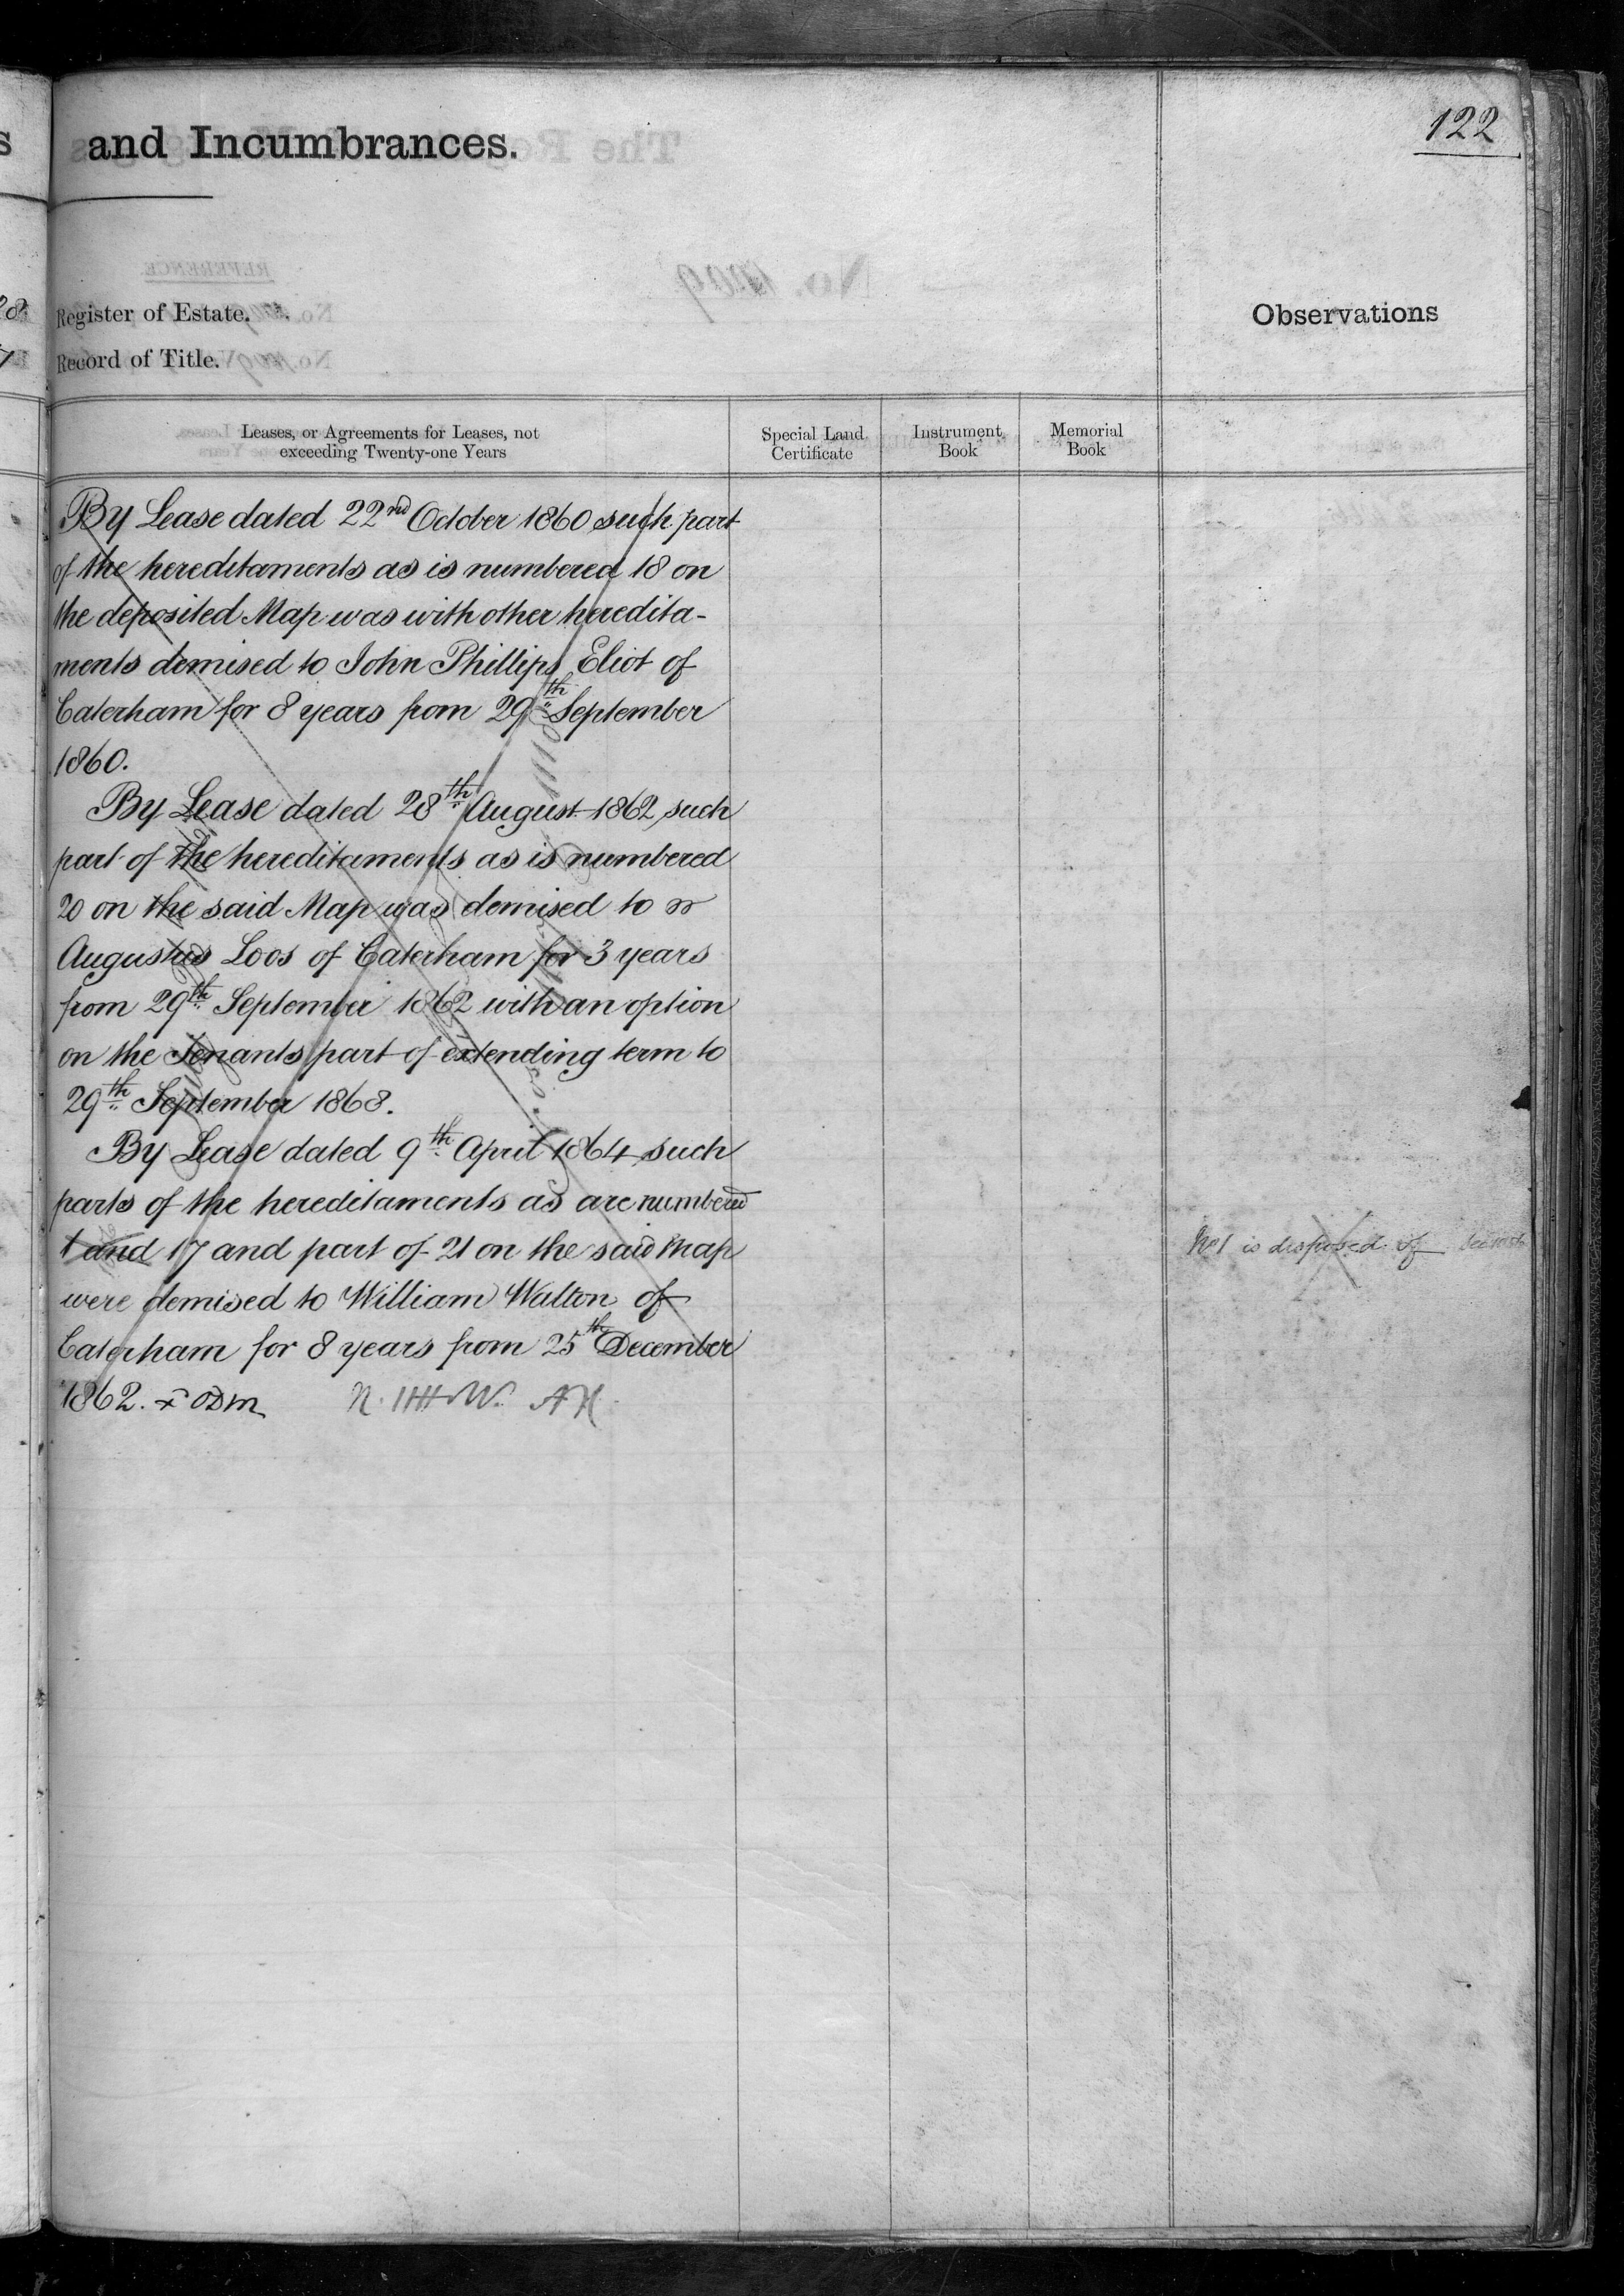 122
and Incumbrances.
Register of Estate.
Record of Title.
Observations
Leases, or Agreements for Leases, not
exceeding Twenty-one Years
Special Land
Certificate
Instrument
Book
Memorial
Book
By Lease dated 22nd October 1860 such part
of the hereditaments as is numbered 18 on
the deposited Map was with other heredita-
ments demised to John Phillips Eliot of
Caterham for 8 years from 29th September
1860.
By Lease dated 28th August 1862 such
part of the hereditaments as is numbered
20 on the said Map was demised to
Augustus Loos of Caterham for 3 years
from 29th September 1862 with an option
on the Tenants part of extending term to
29th September 1868.
By Lease dated 9th April 1864 such
parts of the hereditaments as are numbered
1 and 17 and part of 21 on the said Map
No 1 is disposed of
were demised to William Walton of
Caterham for 8 years from 25th December
1862.